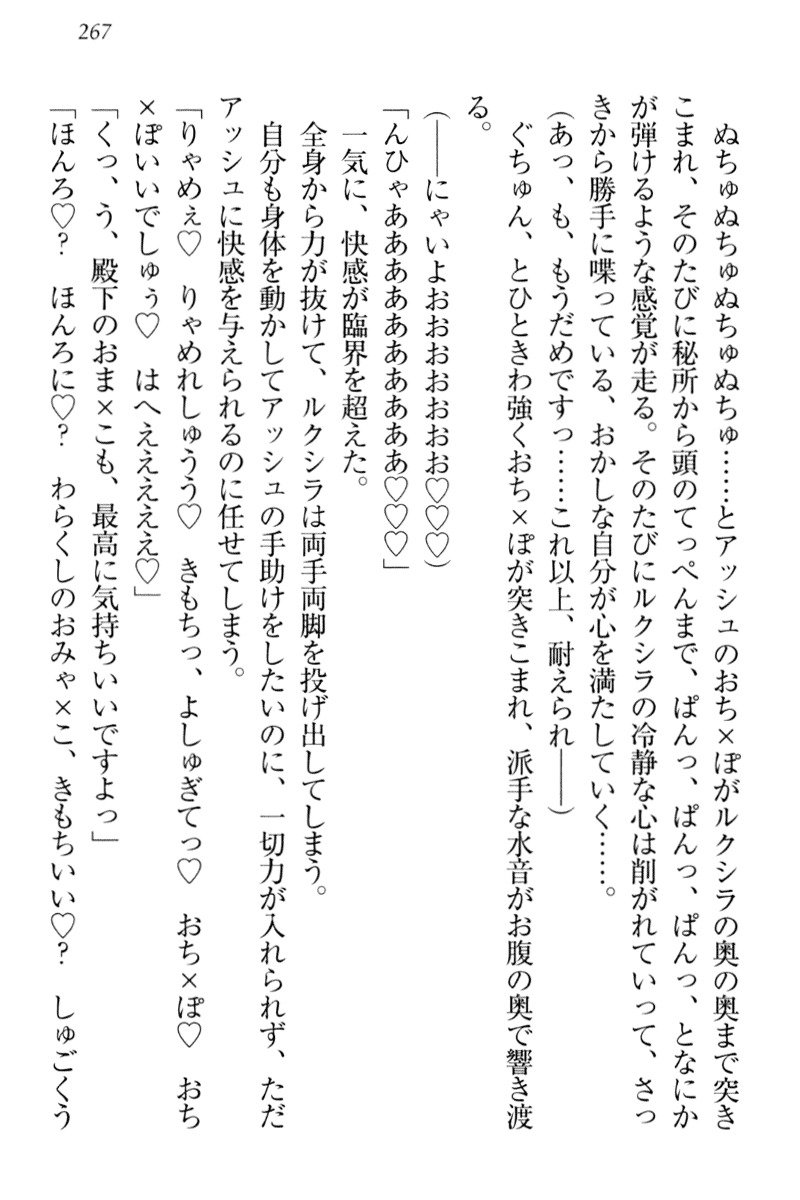 267
ぬちゅぬちゅぬちゅぬちゅ……とアッシュのおち×ぽがルクシラの奥の奥まで突き
こまれ、そのたびに秘所から頭のてっぺんまで、ぱんっ、ぱんっ、ぱんっ、となにか
が弾けるような感覚が走る。そのたびにルクシラの冷静な心は削がれていって、さっ
きから勝手に喋っている、おかしな自分が心を満たしていく……。
(あっ、も、もうだめですっ……これ以上、耐えられ――)
ぐちゅん、とひときわ強くおち×ぽが突きこまれ、派手な水音がお腹の奥で響き渡
る。
(――にゃいよおおおおおおおお♡♡♡)
「んひゃああああああああああああ♡♡♡」
一気に、快感が臨界を超えた。
全身から力が抜けて、ルクシラは両手両脚を投げ出してしまう。
自分も身体を動かしてアッシュの手助けをしたいのに、一切力が入れられず、ただ
アッシュに快感を与えられるのに任せてしまう。
「りゃめぇ♡　りゃめれしゅうう♡　きもちっ、よしゅぎてっ♡　おち×ぽ♡　おち
×ぽいいでしゅぅ♡　はへえええええ♡」
「くっ、う、殿下のおま×こも、最高に気持ちいいですよっ」
「ほんろ♡?　ほんろに♡?　わらくしのおみゃ×こ、きもちいい♡?　しゅごくう